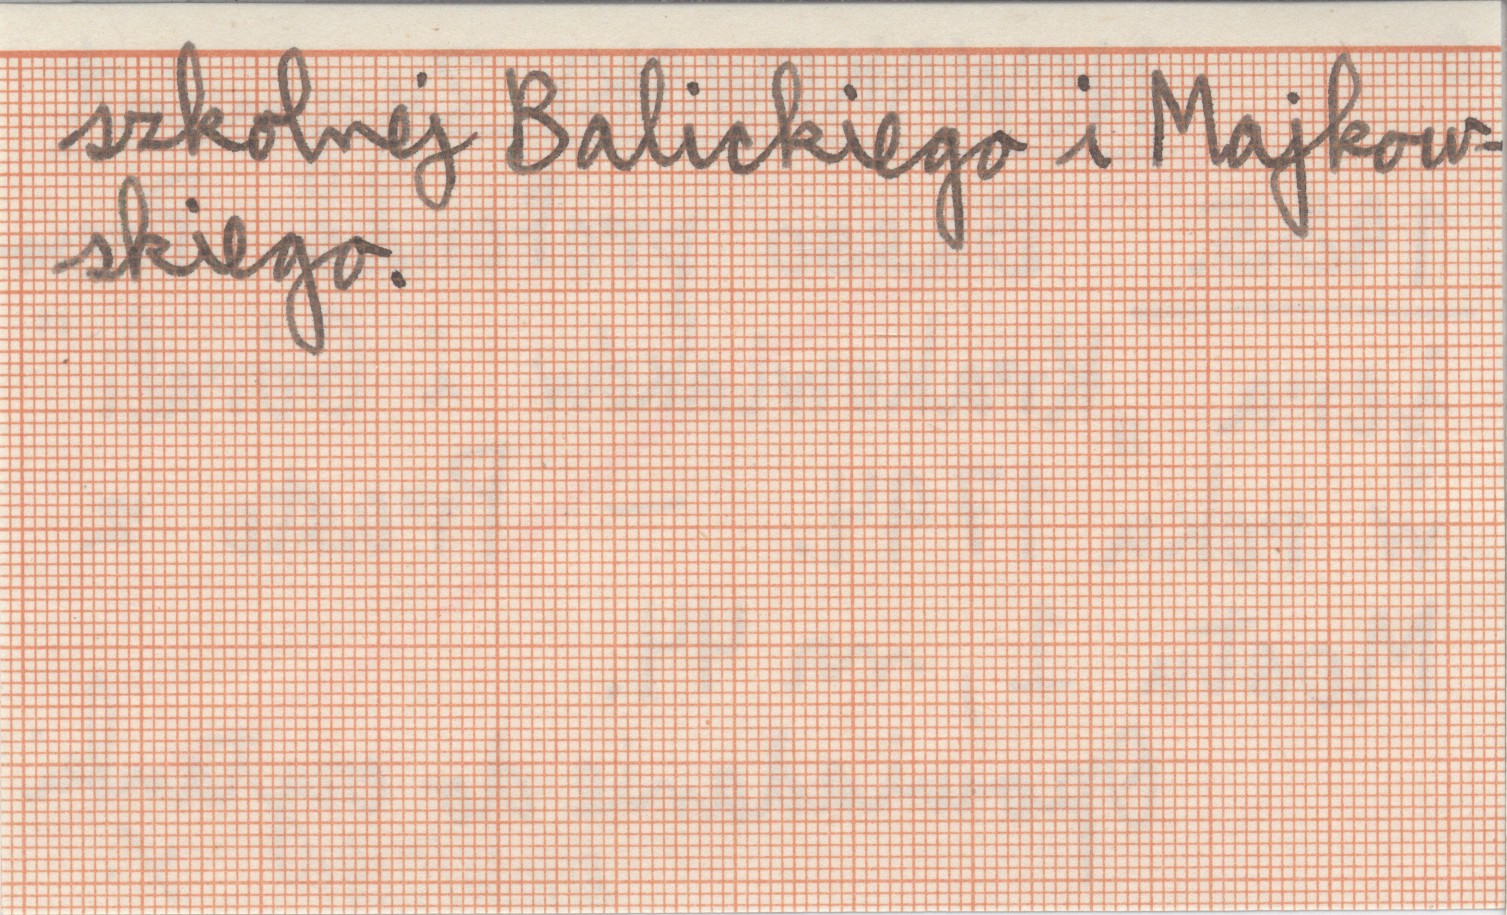 szkolnej Balickiego i Majkow-
skiego.